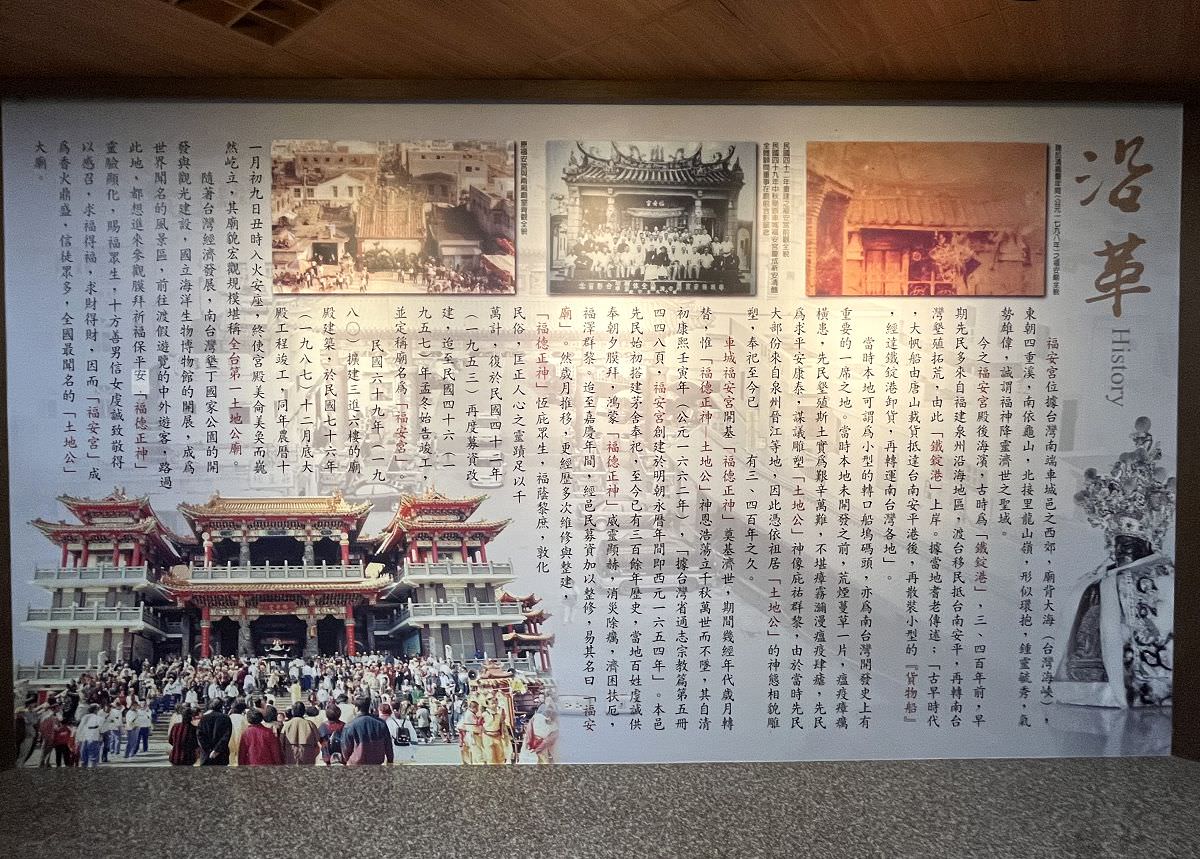 沿革
History
福安宮位據台灣南端車城邑之西郊，廟背大海（台灣海峽），
東朝四重溪，南依龜山，北接里龍山嶺，形似環抱，鍾靈毓秀，氣
勢雄偉，誠謂福神降靈濟世之聖域。
今之福安宮殿後海濱，古時為「鐵錠港」，三、四百年前，早
期先民多來自福建泉州沿海地區，渡台移民抵台南安平，再轉南台
灣墾殖拓荒，由此「鐵錠港」上岸。據當地耆老傳述：「古早時代
，大帆船由唐山載貨抵達台南安平港後，再散裝小型的『貨物船』
，經達鐵錠港卸貨，再轉運南台灣各地」。
當時本地可謂為小型的轉口船塢碼頭，亦為南台灣開發史上有
重要的一席之地。當時本地未開發之前，荒煙蔓草一片，瘟疫瘴癘
橫患，先民墾殖斯土實為艱辛萬難，不堪瘴霧瀰漫瘟疫肆瘧，先民
為求平安康泰，謀議雕塑「土地公」神像庇祐群黎，由於當時先民
大部份來自泉州晉江等地，因此憑依祖居「土地公」的神態相貌雕
塑，奉祀至今已 有三、四百年之久。
車城福安宮開基「福德正神」奠基濟世，期間幾經年代歲月轉
替，惟「福德正神 土地公」神恩浩蕩立千秋萬世而不墜，其自清
初康熙壬寅年（公元一六六二年），「據台灣省通志宗教篇第五冊
四四八頁，福安宮創建於明朝永曆年間即西元一六五四年」。本邑
先民始初搭建茅舍奉祀，至今已有三百餘年歷史，當地百姓虔誠供
奉朝夕膜拜，鴻蒙「福德正神」威靈顯赫，消災除癘，濟困扶厄，
福澤群黎。迨至嘉慶年間，經邑民募資加以整修，易其名曰「福安
廟」。然歲月推移，更經歷多次維修與整建，
「福德正神」恆庇眾生，福蔭黎庶，敦化
民俗，匡正人心之靈蹟足以千
萬計，後於民國四十二年
（一九五三）再度募資改
建，迄至民國四十六（一
九五七）年孟冬始告竣工，
並定稱廟名為「福安宮」。
民國六十九年（一九
八○）擴建三進六樓的廟
殿建築，於民國七十六年
（一九八七）十二月底大
殿工程竣工，同年農曆十
一月初九日丑時入火安座，終使宮殿美侖美奐而巍
然屹立，其廟貌宏觀規模堪稱全台第一土地公廟。
隨著台灣經濟發展，南台灣墾丁國家公園的開
發與觀光建設，國立海洋生物博物館的開展，成為
世界聞名的風景區，前往渡假遊覽的中外遊客，路過
此地，都想進來參觀膜拜祈福保平安，「福德正神」
靈驗顯化，賜福眾生，十方善男信女虔誠致敬得
以感召，求福得福，求財得財，因而「福安宮」成
為香火鼎盛，信徒眾多，全國最聞名的「土地公」
大廟。